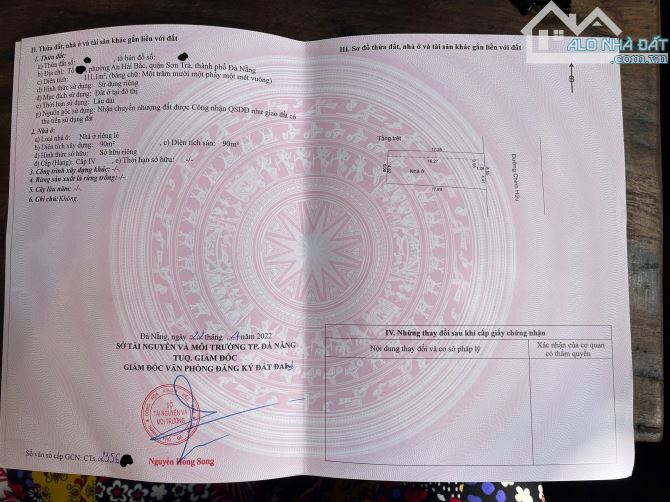 ALO NHÀ ĐẤT
.com.vn
II. Thửa đất, nhà ở và tài sản khác gắn liền với đất
1. Thửa đất:
a) Thửa đất số: , tờ bản đồ số:
b) Địa chỉ: Tổ phường An Hải Bắc, quận Sơn Trà, thành phố Đà Nẵng
c) Diện tích: 111,1m², (bằng chữ: Một trăm mười một phẩy một mét vuông)
d) Hình thức sử dụng: Sử dụng riêng
đ) Mục đích sử dụng: Đất ở tại đô thị
e) Thời hạn sử dụng: Lâu dài
g) Nguồn gốc sử dụng: Nhận chuyển nhượng đất được Công nhận QSDĐ như giao đất có
thu tiền sử dụng đất
2. Nhà ở:
a) Loại nhà ở: Nhà ở riêng lẻ
b) Diện tích xây dựng: 90m², c) Diện tích sàn: 90m²
d) Hình thức sở hữu: Sở hữu riêng
đ) Cấp (Hạng): Cấp IV , e) Thời hạn sở hữu: -/-
3. Công trình xây dựng khác: -/-
4. Rừng sản xuất là rừng trồng: -/-
5. Cây lâu năm: -/-
6. Ghi chú: Không.
Đà Nẵng, ngày 22 tháng 4 năm 2022
SỞ TÀI NGUYÊN VÀ MÔI TRƯỜNG TP. ĐÀ NẴNG
TUQ. GIÁM ĐỐC
GIÁM ĐỐC VĂN PHÒNG ĐĂNG KÝ ĐẤT ĐAI
SỞ
TÀI NGUYÊN VÀ
MÔI TRƯỜNG
Nguyễn Hồng Song
Số vào sổ cấp GCN: CTs.
III. Sơ đồ thửa đất, nhà ở và tài sản khác gắn liền với đất
B
Tầng trệt
16,27
Nhà ở
Đường Chính Hữu
IV. Những thay đổi sau khi cấp giấy chứng nhận
Nội dung thay đổi và cơ sở pháp lý
Xác nhận của cơ quan
có thẩm quyền